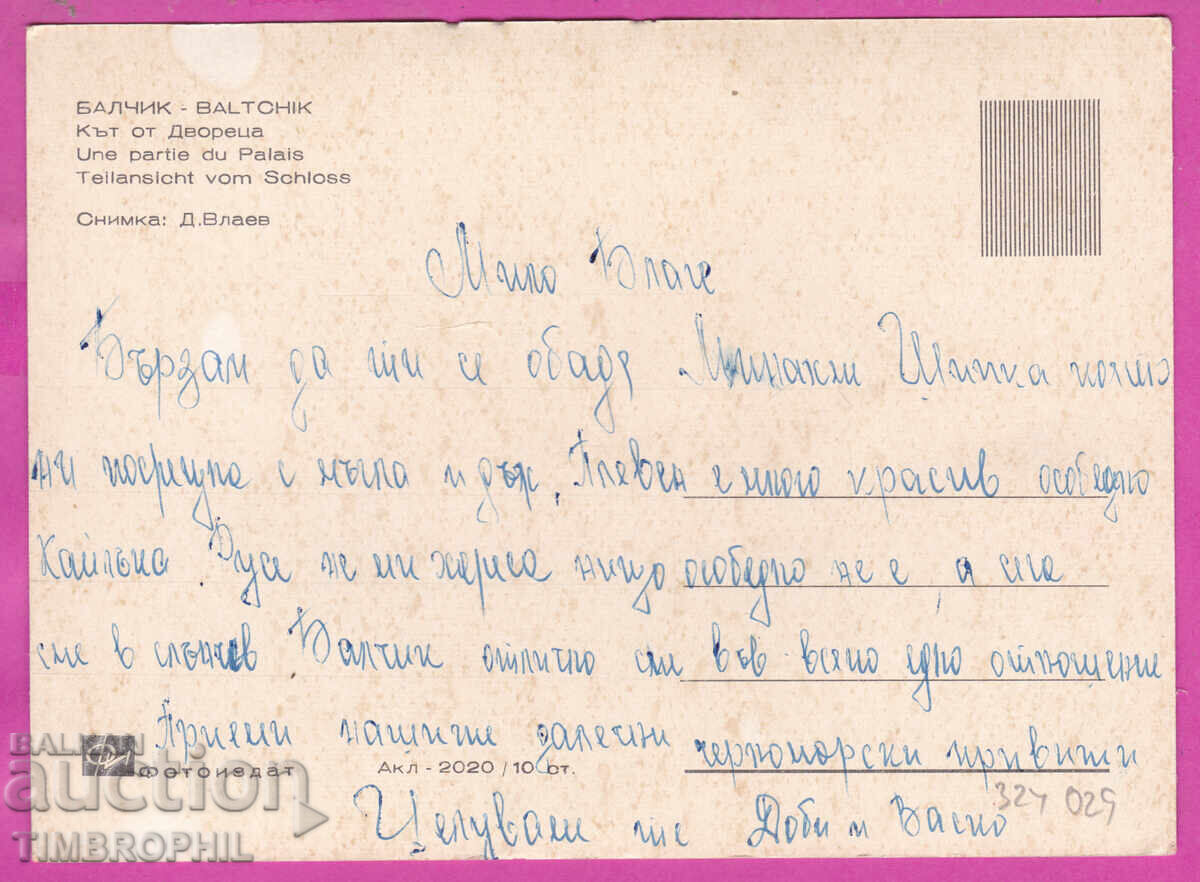 БАЛЧИК - BALTCHIK
Кът от Двореца
Une partie du Palais
Teilansicht vom Schloss
Снимка: Д.Влаев
Мило Благе
Бързам да ти се обадя Минахме Шипка която
ни посрещна с мъгла и дъж. Плевен е много красив особедно
Кайлъка. Русе не ми хареса нищо особедно не е, а сега
сме в слънчев Балчик отлично сме във всяко едно отношение
Приеми нашите далечни черноморски привити
Целувам те Доби и Васко
324 029
Фотоиздат
Акл - 2020 / 10 ст.
BALKAN
auction
TIMBROPHIL